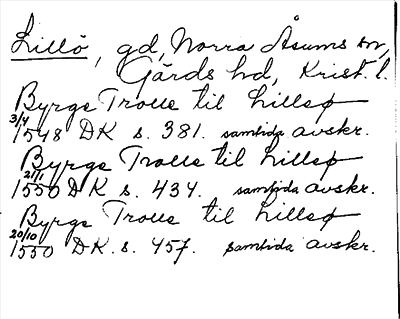 Lillö, gd, Norra Åsums sn,
Gärds hd, Krist. l.
Byrge Trolle til Lillsø
3/4 1548 DK s. 381. samtida avskr.
Byrge Trolle til Lillsø
21/1 1550 DK s. 434. samtida avskr.
Byrge Trolle til Lillsø
20/10 1550 DK. s. 457. samtida avskr.